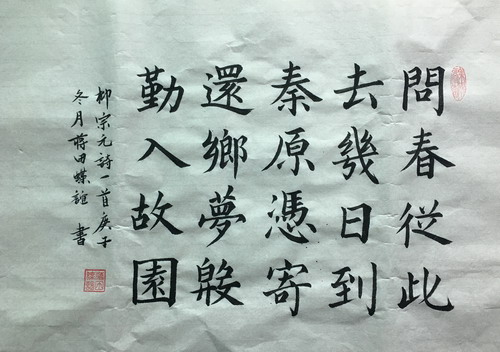 問春從此
去幾日到
秦原憑寄
還鄉夢殷
勤入故園
柳宗元詩一首庚子
冬月蔣田蝶 書